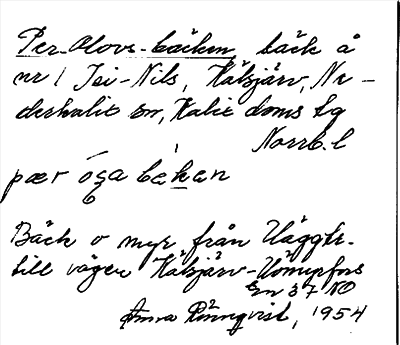 Per-Olovs-bäcken, bäck å
nr 1 Isi-Nils, Hätsjärv, Ne-
derkalix sn, Kalix doms tg
Norrb. l
pær óga bekan
Bäck o myr från
till vägen Hätsjärv-
En 37 NO
Anna Rönnqvist, 1954